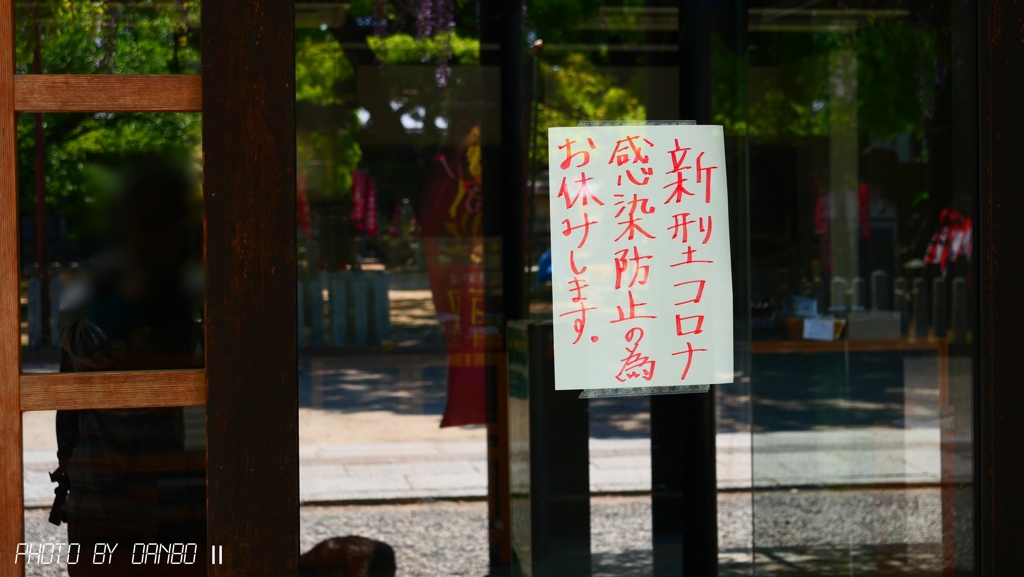 新型コロナ
感染防止の為
お休みします。
PHOTO BY DANBO II